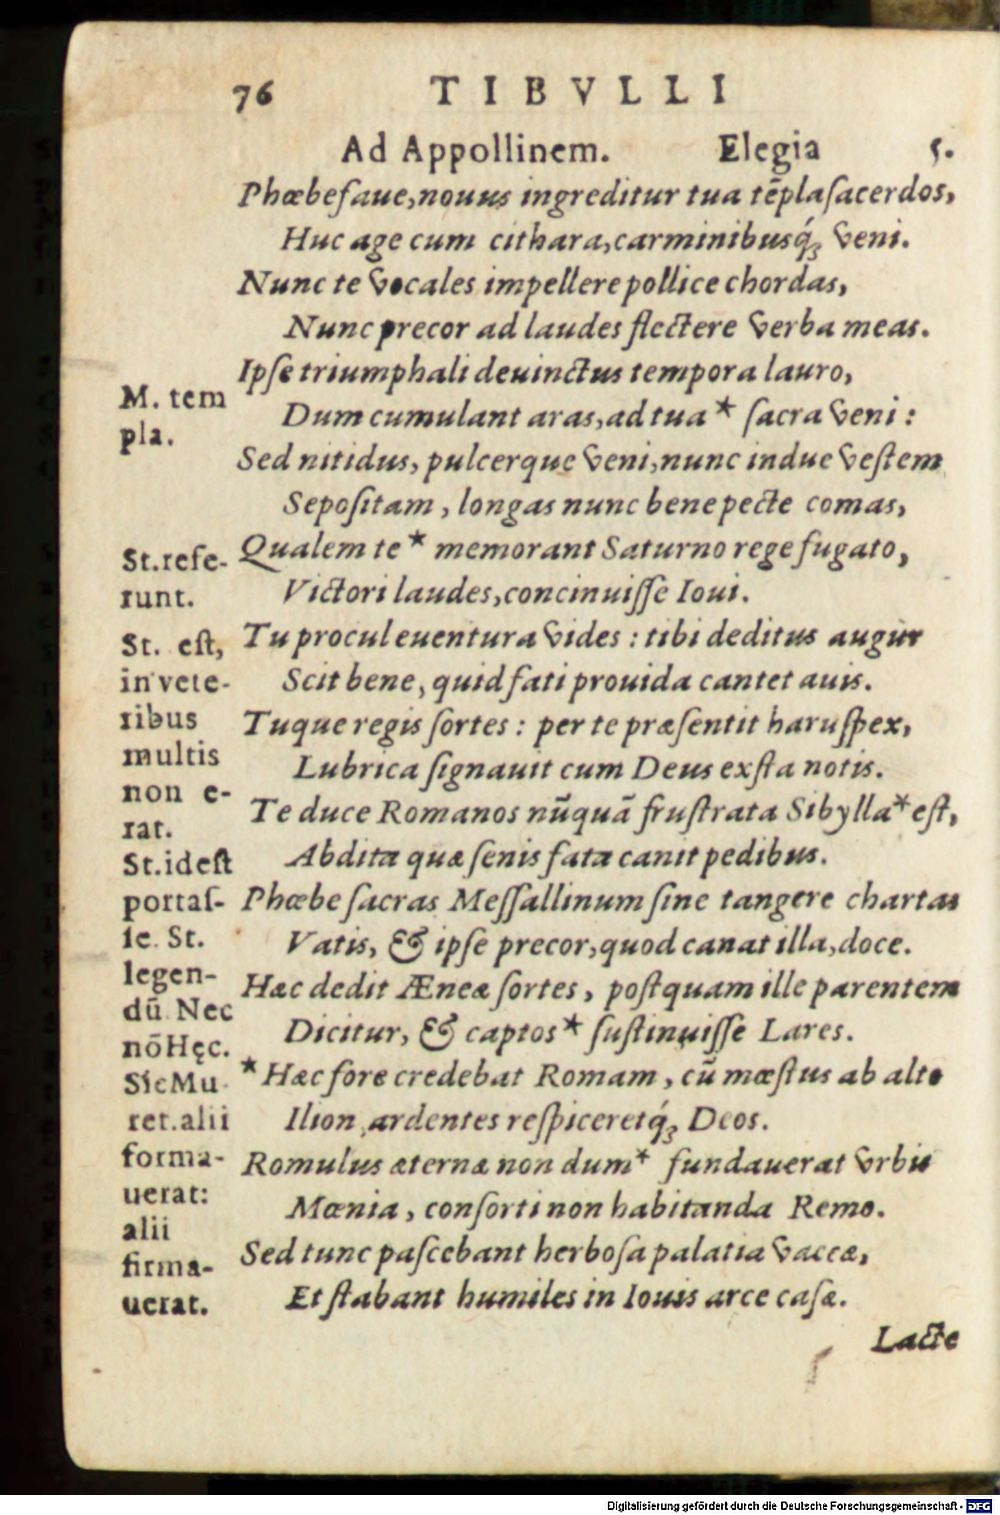 76 TIBVLLI
Ad Appollinem. Elegia 5.
Phœbe faue, nouus ingreditur tua tẽpla sacerdos,
Huc age cum cithara, carminibusq́ꝫ veni.
Nunc te vocales impellere pollice chordas,
Nunc precor ad laudes flectere verba meas.
Ipse triumphali deuinctus tempora lauro,
Dum cumulant aras, ad tua * sacra veni:
Sed nitidus, pulcerque veni, nunc indue vestem
Sepositam, longas nunc bene pecte comas,
Qualem te * memorant Saturno rege fugato,
Victori laudes, concinuisse Ioui.
Tu procul euentura vides: tibi deditus augur
Scit bene, quid fati prouida cantet auis.
Tuque regis sortes: per te præsentit haruspex,
Lubrica signauit cum Deus exsta notis.
Te duce Romanos nũquã frustrata Sibylla * est,
Abdita quæ senis fata canit pedibus.
Phœbe sacras Messallinum sine tangere chartas
Vatis, & ipse precor, quod canat illa, doce.
Hæc dedit Æneæ sortes, postquam ille parentem
Dicitur, & captos * sustinuisse Lares.
* Hæc fore credebat Romam, cũ mœstus ab alto
Ilion ardentes respiceretq́ꝫ Deos.
Romulus æternæ non dum * fundauerat vrbis
Mœnia, consorti non habitanda Remo.
Sed tunc pascebant herbosa palatia vaccæ,
Et stabant humiles in Iouis arce casæ.
Lacte
M. tem
pla.
St. refe-
runt.
St. est,
in vete-
ribus
multis
non e-
rat.
St. idest
portas-
se. St.
legen-
dũ Nec
nõ Hęc.
Sic Mu
ret. alii
forma-
uerat:
alii
firma-
uerat.
Digitalisierung gefördert durch die Deutsche Forschungsgemeinschaft - DFG